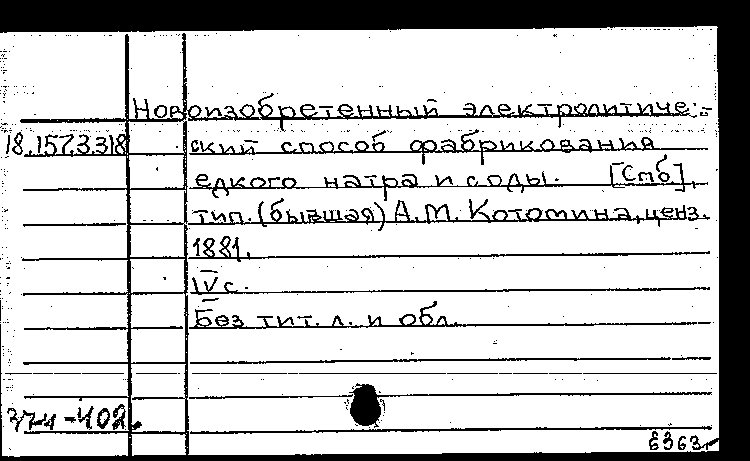 Новоизобретенный электролитиче-
18.157.3.318 ский способ фабрикования
едкого натра и соды. [Спб],
тип. (бывшая) А.М. Котомина, ценз.
1881.
IV с.
Без тит. л. и обл.
37-4-402.